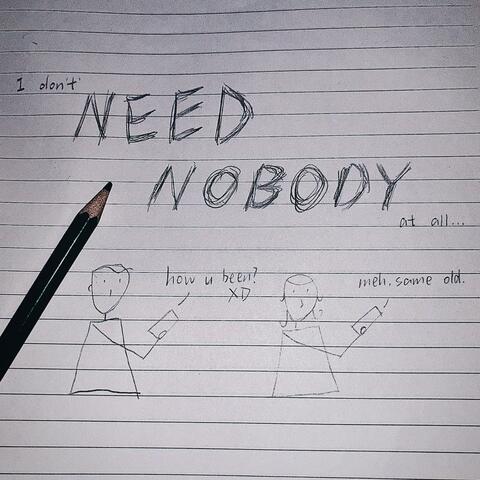 I don't
NEED
NOBODY
at all...
how u been?
XD
meh. same old.